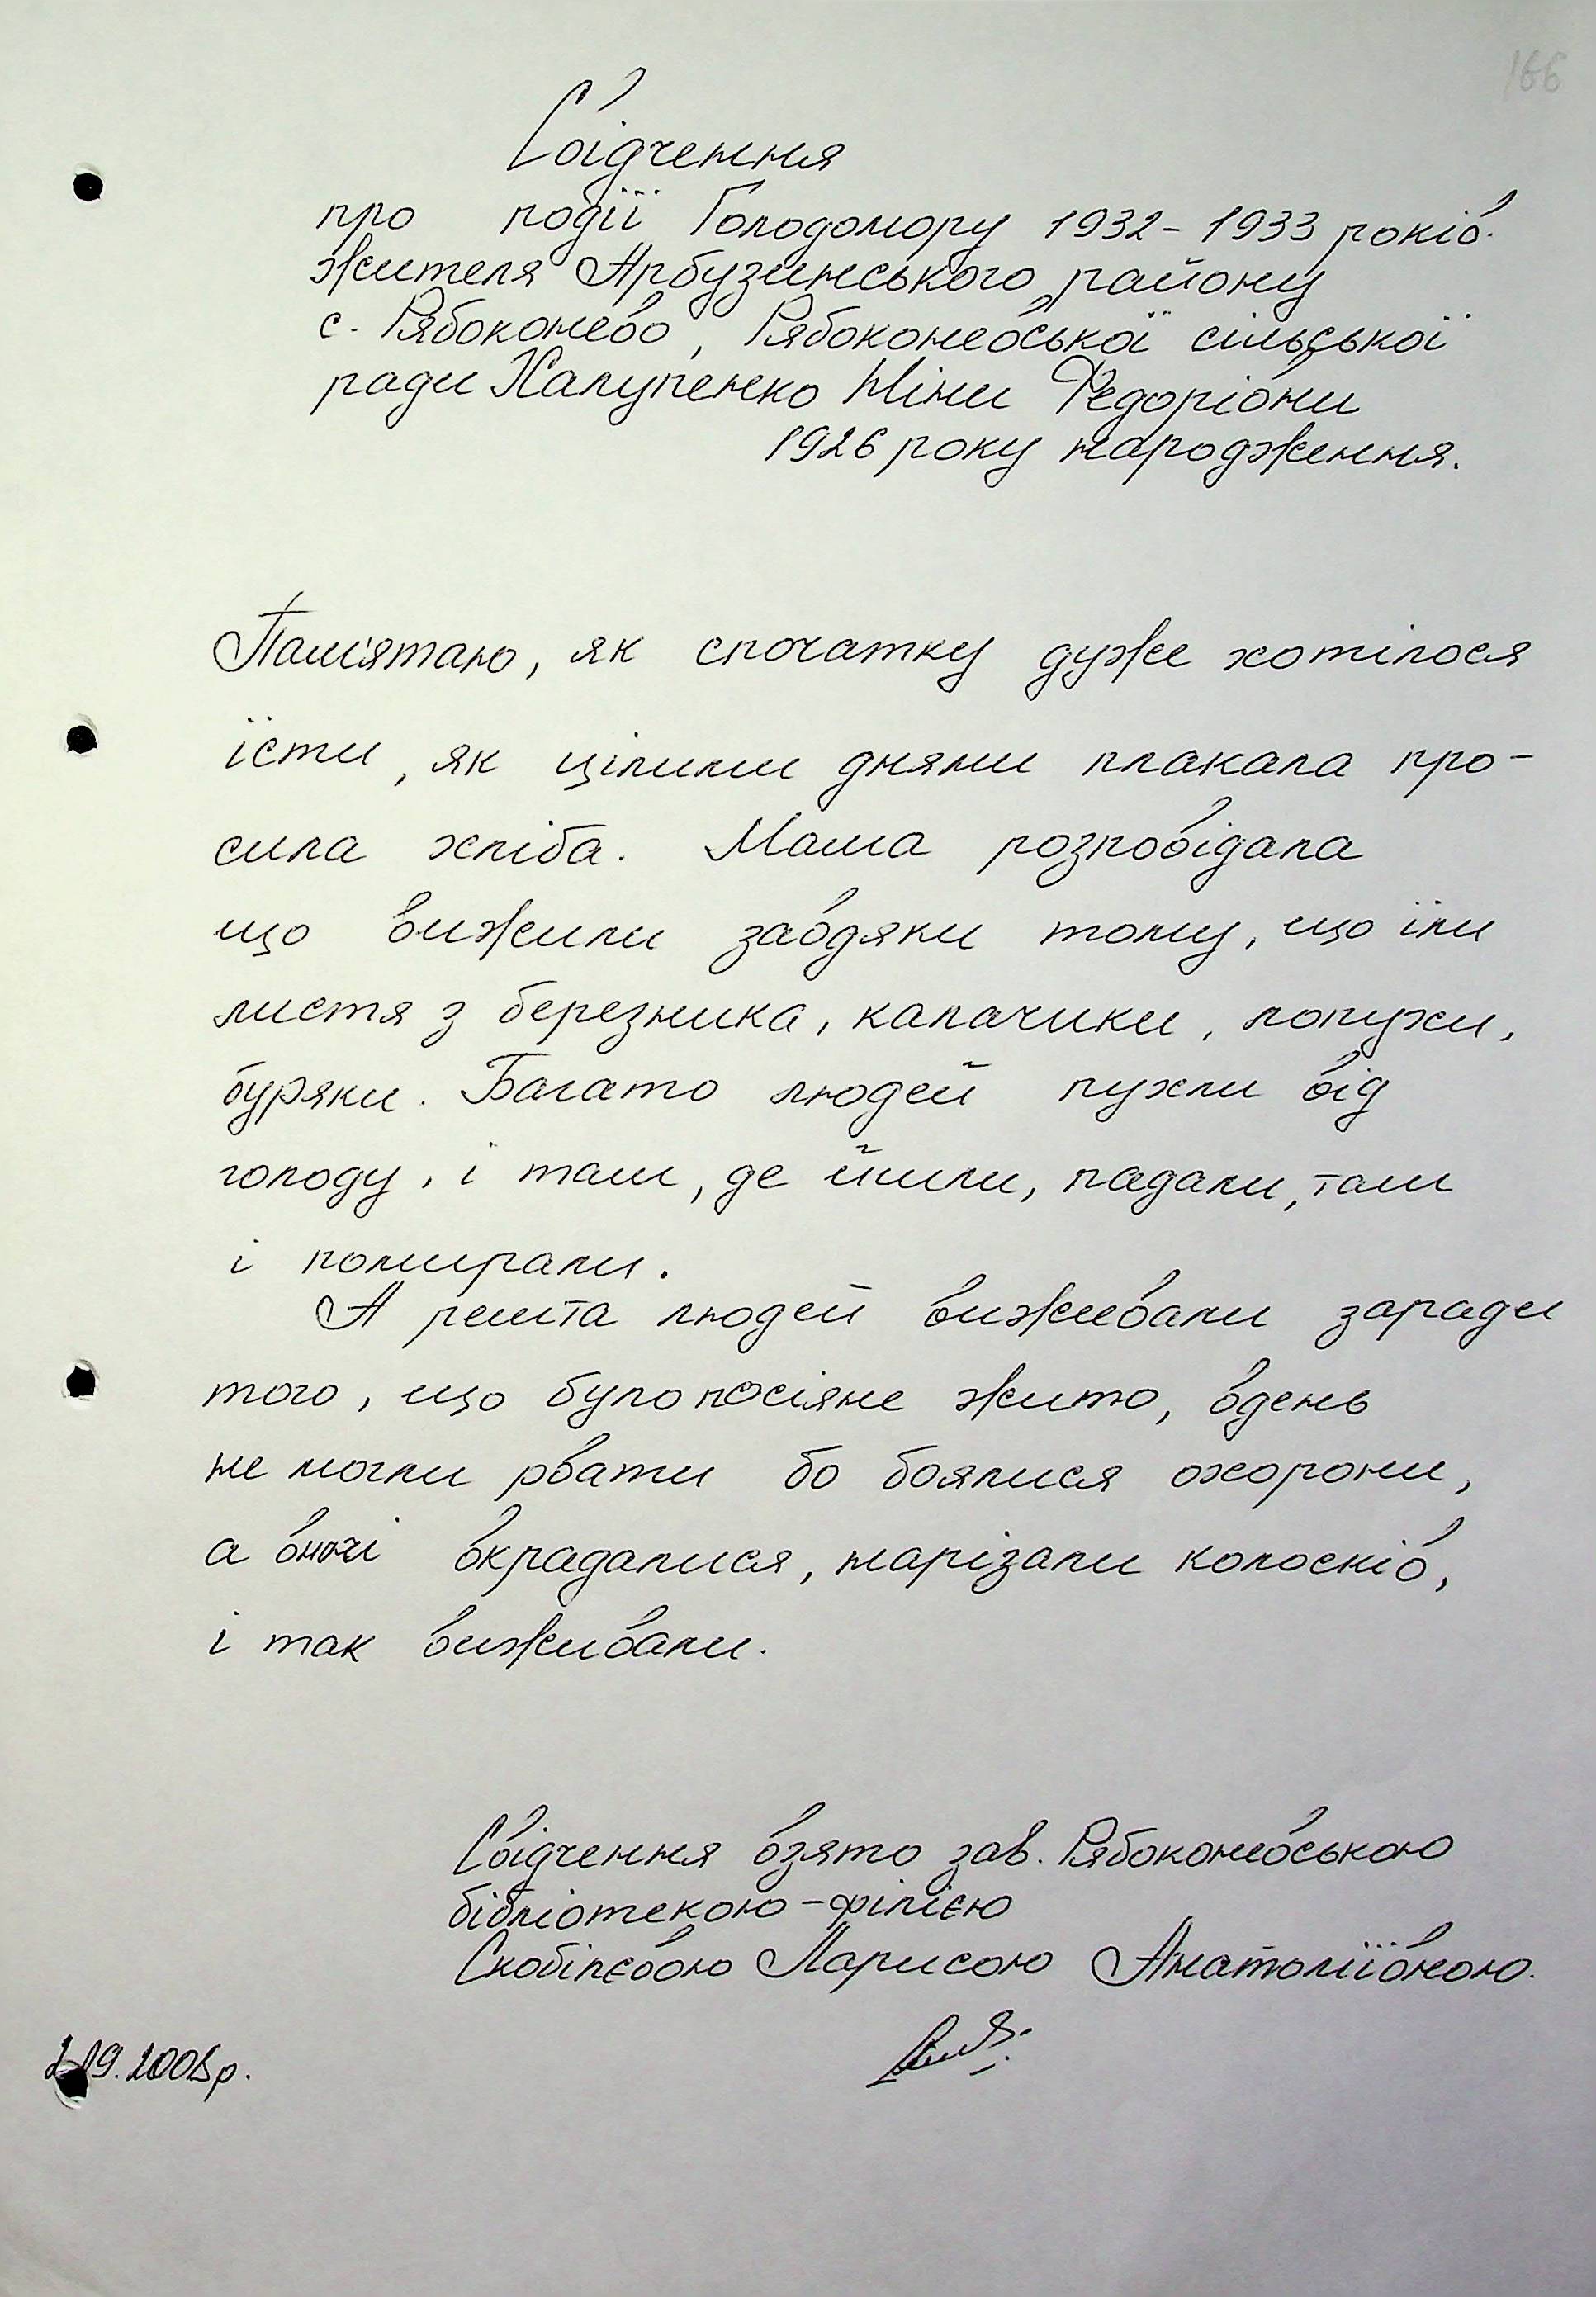 166
Свідчення
про події Голодомору 1932-1933 років.
жителя Арбузинського району
с. Рябоконево, Рябоконевської сільської
ради Халупенко Ніни Федорівни
1926 року народження.
Пам'ятаю, як спочатку дуже хотілося
їсти, як цілими днями плакала про-
сила хліба. Мама розповідала
що вижили завдяки тому, що їли
листя з березника, калачики, лопухи,
буряки. Багато людей пухли від
голоду, і там, де йшли, падали, там
і помирали.
А решта людей виживали заради
того, що було посіяне жито, вдень
не могли рвати бо боялися охорони,
а вночі вкрадалися, нарізали колосків,
і так виживали.
Свідчення взято зав. Рябоконевською
бібліотекою-філією
Скобілєвою Ларисою Анатоліївною.
19.2008р.